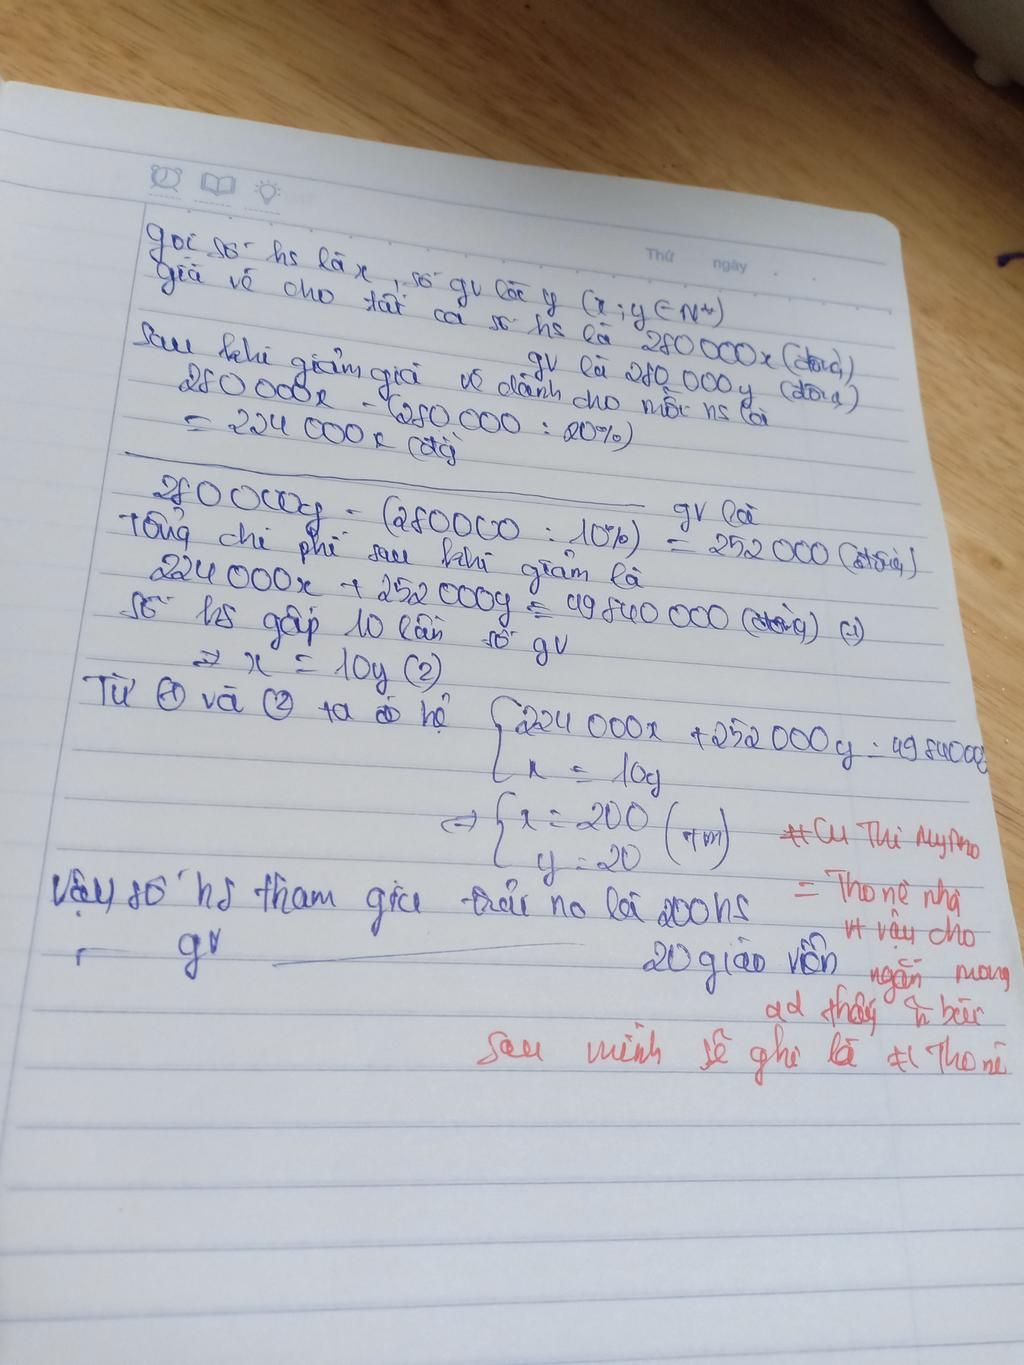 Thứ ngày
gọi số hs là x, số gv là y (x; y ∈ N*)
giá vé cho tất cả số hs là 280 000x (đồng)
gv là 280 000y (đồng)
Sau khi giảm giá vé dành cho mỗi hs là
280 000x - (280 000 : 20%)
= 224 000x (đg)
gv là
280 000y - (280000 : 10%) = 252 000 (đồng)
tổng chi phí sau khi giảm là
224 000x + 252 000y = 49840 000 (đồng) (1)
số hs gấp 10 lần số gv
⇒ x = 10y (2)
Từ (1) và (2) ta có hệ { 224 000x + 252 000y = 4984000
x = 10y
⇔ { x = 200 (tm)
y = 20
Vậy số hs tham gia trải no là 200 hs
gv 20 giáo viên
# Cu Thi
= Tho nè nha
vt vậy cho
ngắn mong
ad thấy
sau mình sẽ ghi là # Tho nè